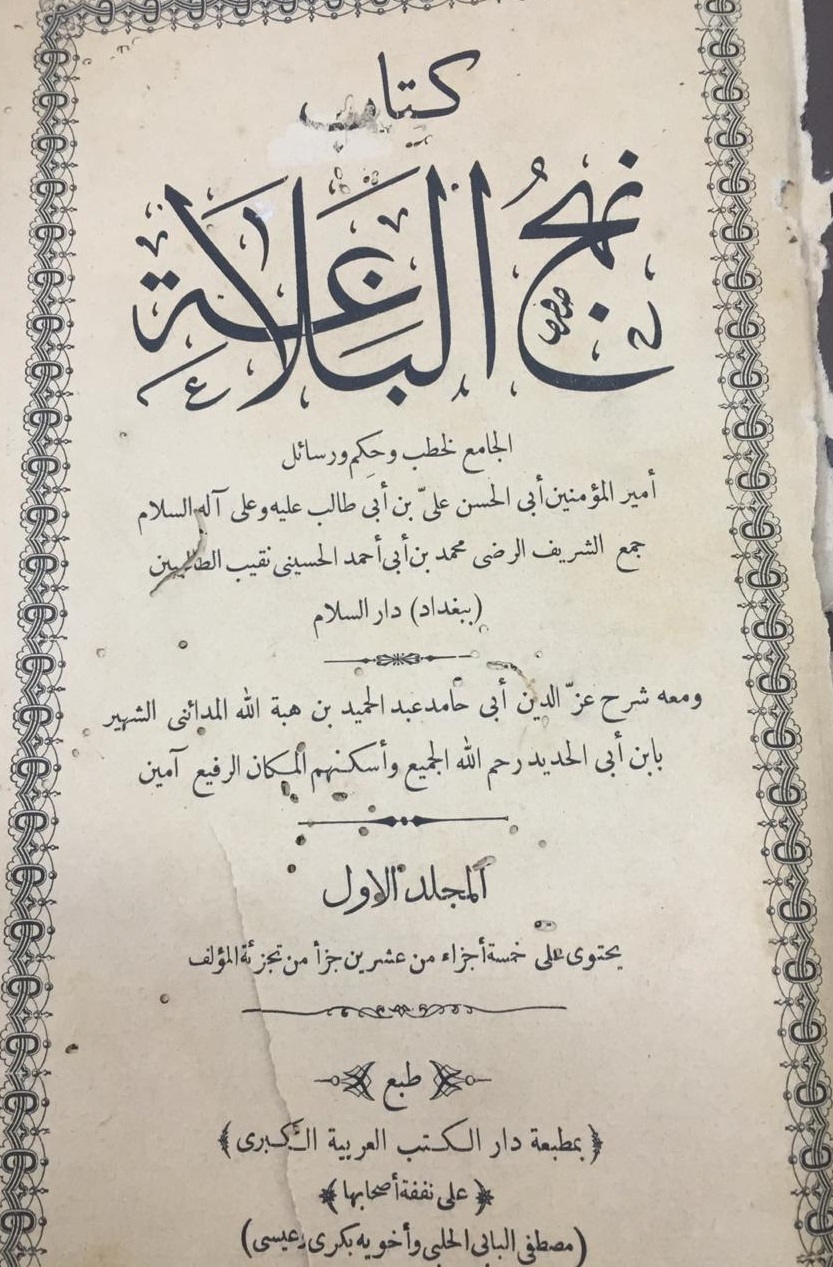 كتاب
نهج البلاغة
الجامع لخطب وحِكم ورسائل
أمير المؤمنين أبى الحسن علىّ بن أبى طالب عليه وعلى آله السلام
جمع الشريف الرضى محمد بن أبى أحمد الحسينى نقيب الطالبيين
(ببغداد) دار السلام
ومعه شرح عزّ الدين أبى حامد عبد الحميد بن هبة الله المدائنى الشهير
بابن أبى الحديد رحم الله الجميع وأسكنهم المكان الرفيع آمين
المجلد الاول
يحتوى على خمسة أجزاء من عشرين جزأ من تجزئة المؤلف
طبع
(بمطبعة دار الكتب العربية الكبرى)
(على نفقة أصحابها)
(مصطفى البابى الحلبى وأخويه بكرى وعيسى)